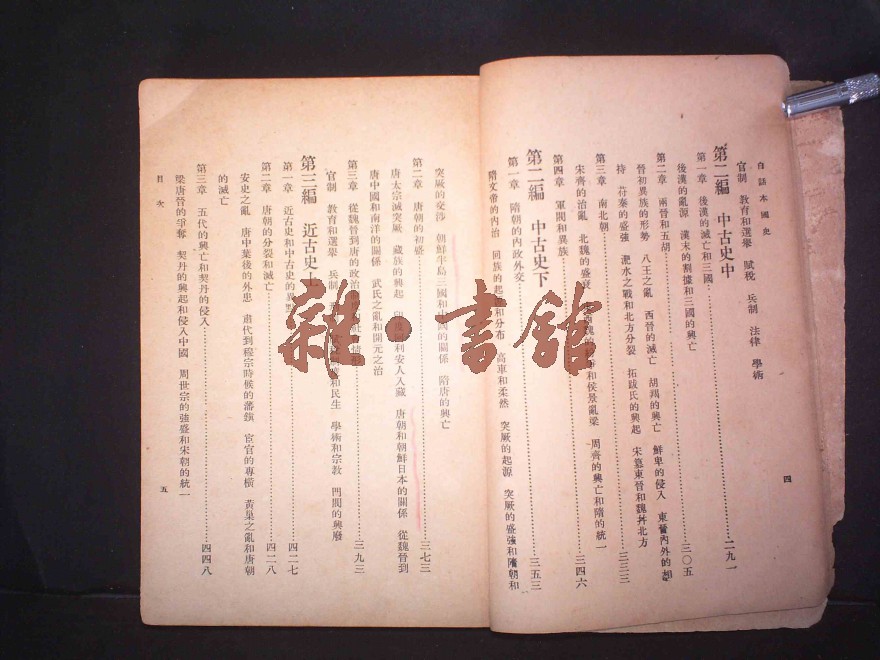 白話本國史
四
官制　教育和選舉　賦稅　兵制　法律　學術
第二編　中古史中
第一章　後漢的滅亡和三國………二九一
後漢的亂源　漢末的割據和三國的興亡
第二章　兩晉和五胡………三〇五
晉初異族的形勢　八王之亂　西晉的滅亡　胡羯的興亡　鮮卑的侵入　東晉內外的
持　苻秦的盛強　淝水之戰和北方分裂　拓跋氏的興起　宋篡東晉和魏幷北方
第三章　南北朝………三三三
宋齊的治亂　北魏的盛衰　和侯景亂梁　周齊的興亡和隋的統一
第四章　軍閥和異族………三四六
第二編　中古史下
第一章　隋朝的內政外交………三五三
隋文帝的內治　回族的起源和分布　高車和柔然　突厥的起源　突厥的盛強和隋朝和
突厥的交涉　朝鮮半島三國和中國的關係　隋唐的興亡
第二章　唐朝的初盛………三七三
唐太宗滅突厥　藏族的興起　印度阿利安人入藏　唐朝和朝鮮日本的關係　從魏晉到
唐中國和南洋的關係　武氏之亂和開元之治
第三章　從魏晉到唐的政治………三九三
官制　教育和選舉　兵制　和民生　學術和宗教　門閥的興廢
第三編　近古史上
第一章　近古史和中古史的異點………四二七
第二章　唐朝的分裂和滅亡………四二八
安史之亂　唐中葉後的外患　肅代到穆宗時候的藩鎮　宦官的專橫　黃巢之亂和唐朝
的滅亡
第三章　五代的興亡和契丹的侵入………四四八
梁唐晉的爭奪　契丹的興起和侵入中國　周世宗的強盛和宋朝的統一
目次
五
雜·書館